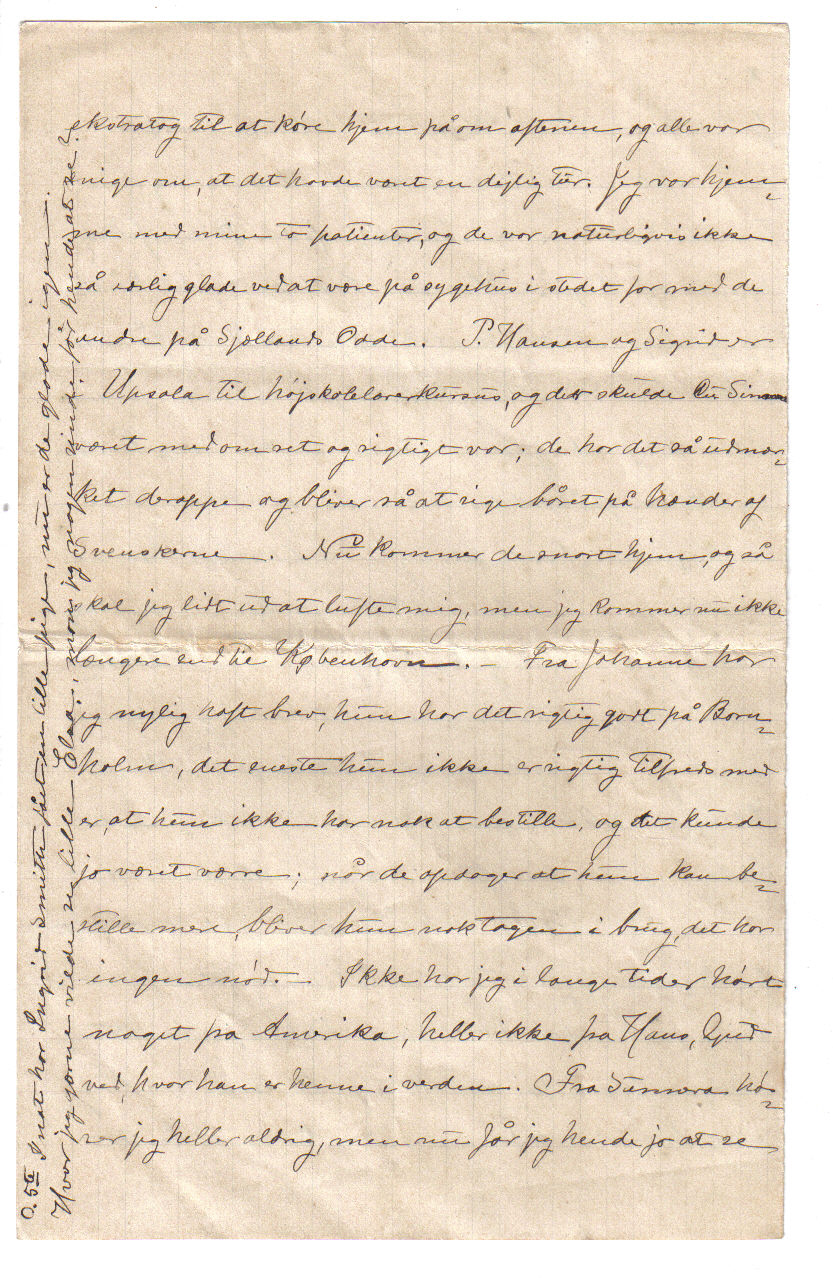 ekstratog til at køre hjem på om aftenen, og alle var
enige om, at det havde været en dejlig tur. Jeg var hjem=
me med mine to patienter, og de var naturligvis ikke
så særlig glade ved at være på sygehus i stedet for med de
andre på Sjællands Odde. P. Hansen og Sigrid er
Upsala til højskolelærerkursus, og der skulde
været med om set og rigtigt var; de har det så udmær=
ket deroppe og bliver så at sige båret på hænder af
Svenskerne. Nu kommer de snart hjem, og så
skal jeg lidt ud at lufte mig, men jeg kommer nu ikke
længere end til København. – Fra Johanne har
jeg nylig haft brev, hun har det rigtig godt på Born=
holm, det eneste hun ikke er rigtig tilfreds med
er, at hun ikke har nok at bestille, og det kunde
jo været værre; når de opdager at hun kan be=
stille mere, bliver hun nok tagen i brug, det har
ingen nød. – Ikke har jeg i lange tider hørt
noget fra Amerika, heller ikke fra Hans, Gud
ved, hvor han er henne i verden. Fra hø=
rer jeg heller aldrig, men nu får jeg hende jo at se
O. 5te I nat har Ingrid Smith fået en lille pige, nu er de glade igen.
Hvor jeg gærne vilde se lille Elna, mon jeg nogen sinde får hende at se?